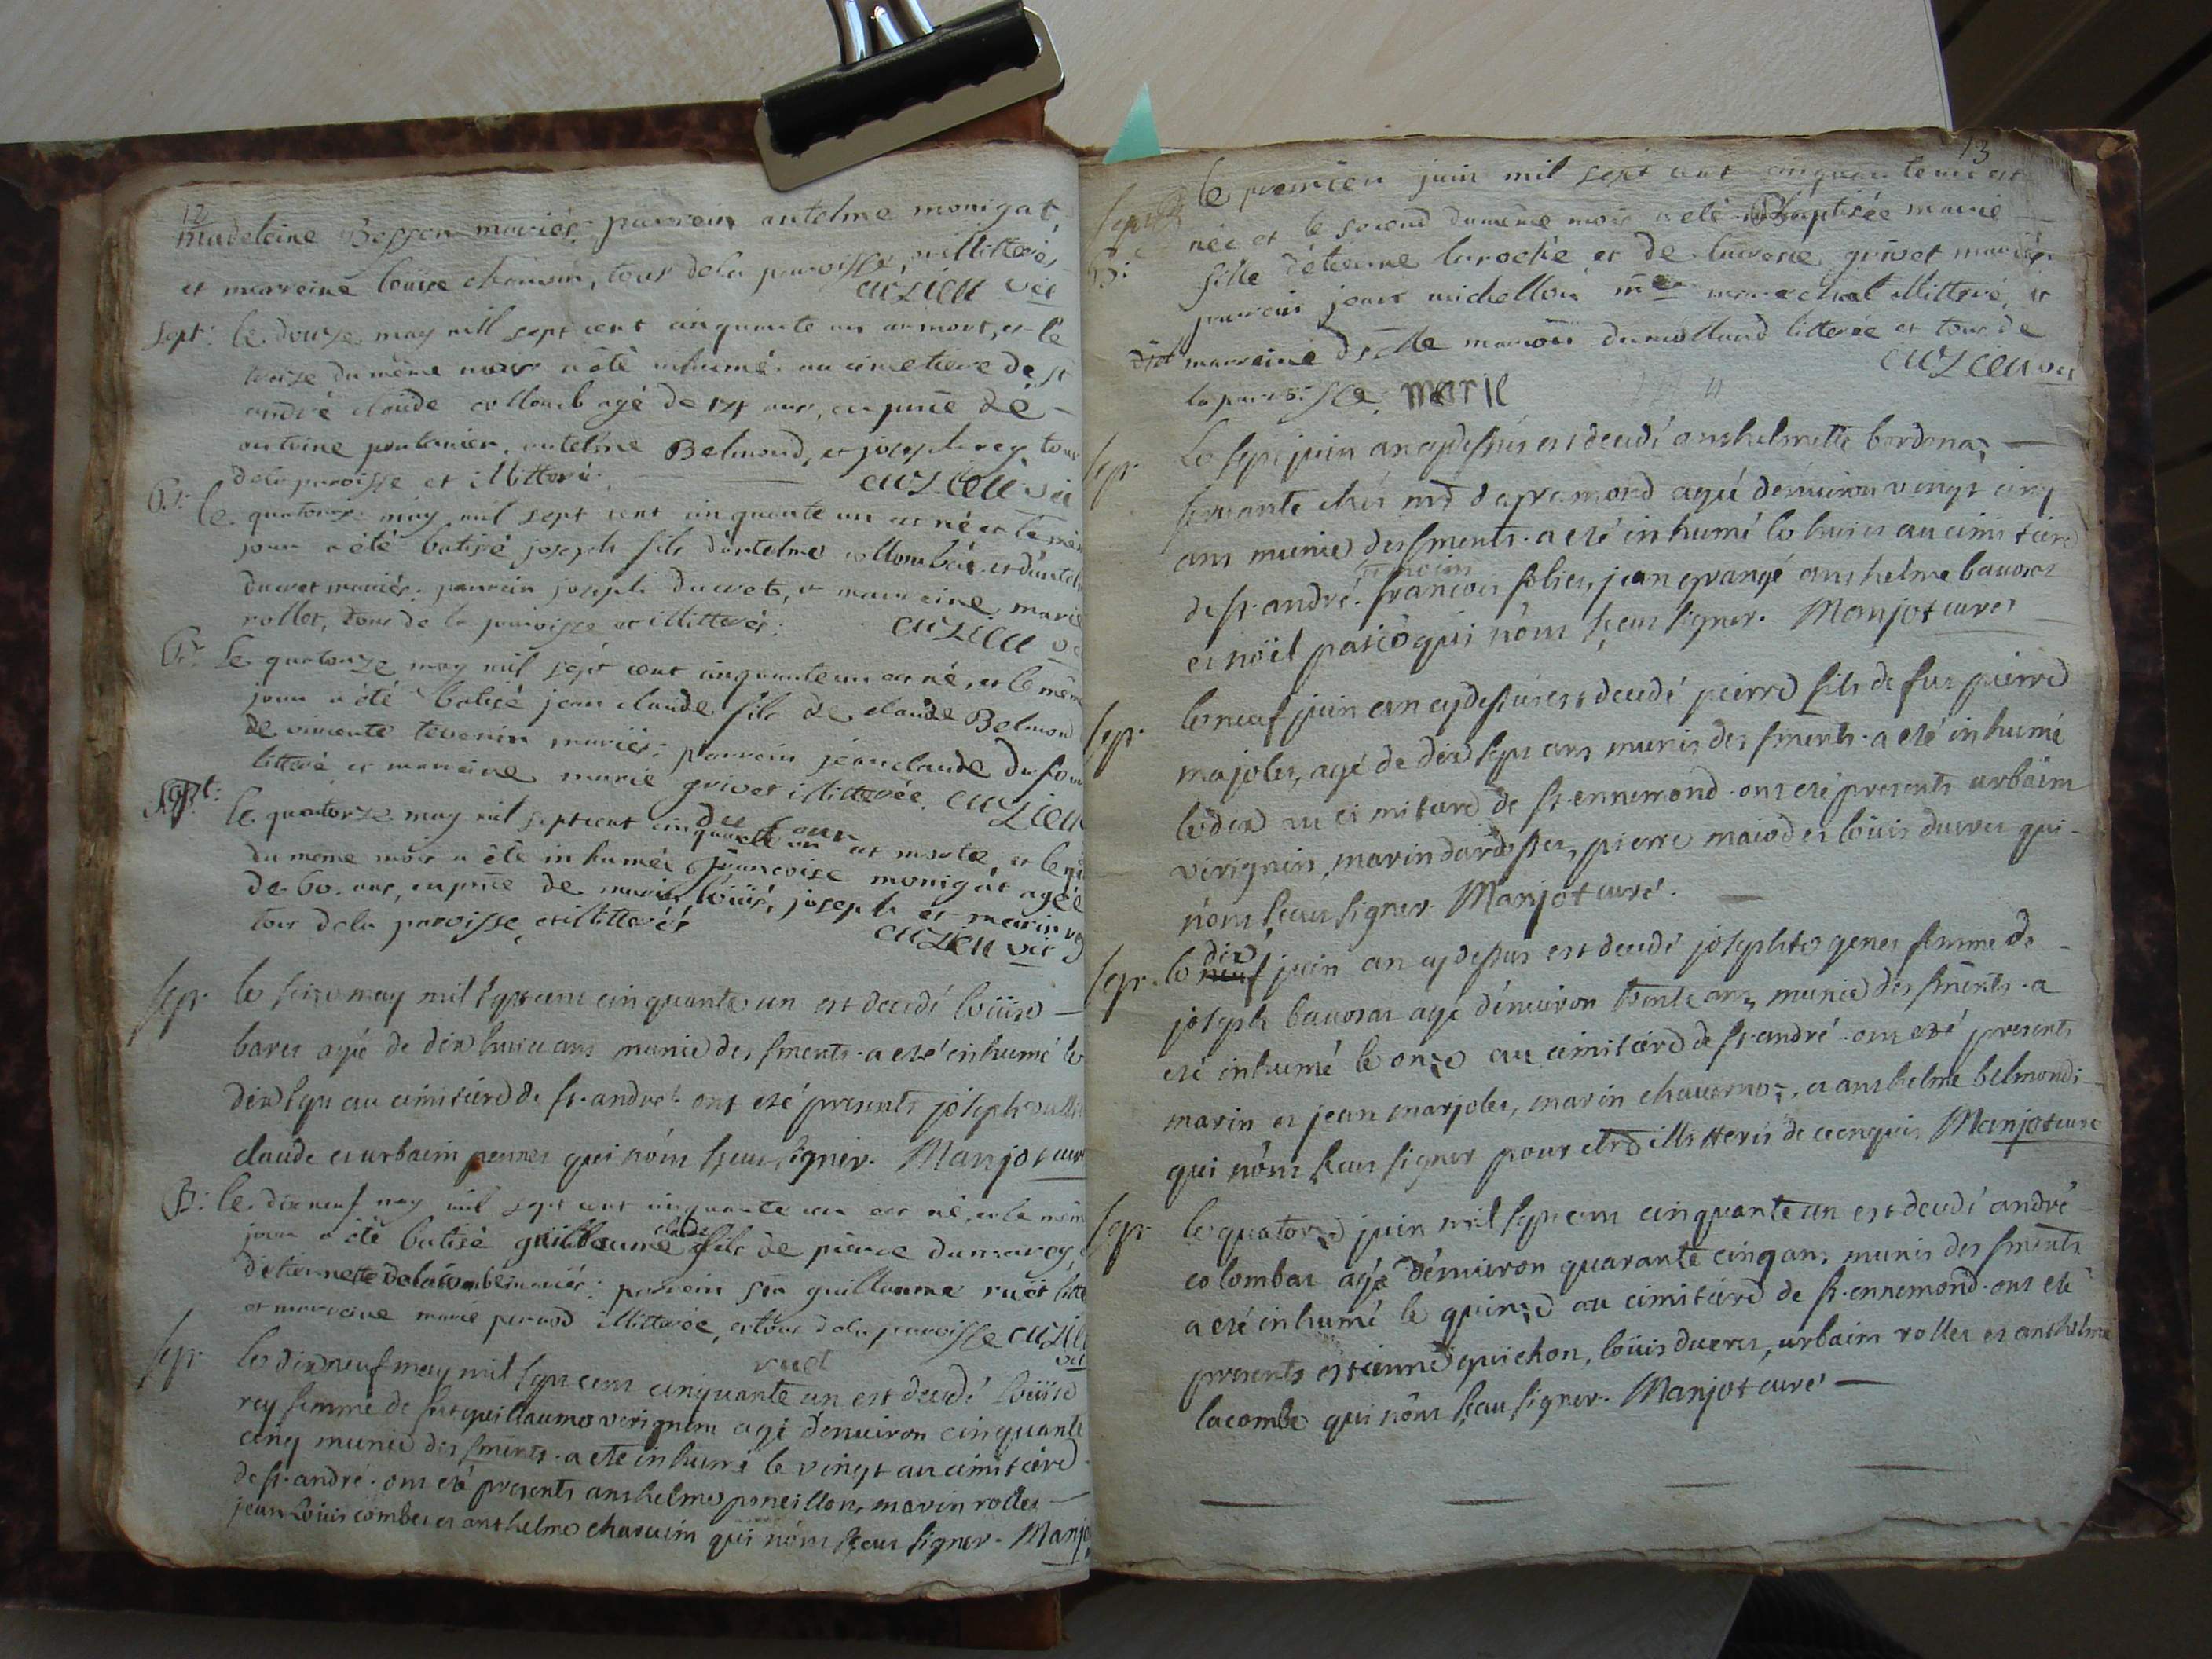 12
madeleine Besson mariés parrein antelme monigat,
et marreine louise chamvin, tous dela paroisse, illitterés
cuzieu vic
Sept: le douze may mil sept cent cinquante un est mort, et le
treize du même mois a été inhumé au cimetiere de st
andré claude collomb agé de ans, en pnce de
antoine, antelme Belmond, et joseph rey tous
dela paroisse et illitteré. cuzieu vic
B: le quatorze may mil sept cent cinquante un est né et le mem
jour a été batisé joseph fils d'antelme collomb et d'antel
ducret mariés: parrein joseph ducret, et marreine marie
rollet, tous de la paroisse et illitterés. cuzieu v
B: le quatorze may mil sept cent cinquante un est né, et le mêm
jour a été batisé jean claude fils de claude Belmond
de vincente tevenin mariés: parrein jean claude dufour
litteré et marreine marie grivet illitterée. cuzieu
du four
Sept: le quatorze may mil sept cent cinquante un est morte, et le
du meme mois a été inhumée françoise monigat agée
de 60. ans, en pnce de marin loüis, joseph et marin
tous dela paroisse, et illitterés cuzieu vic
sepr le seize may mil sept cent cinquante un est decedé loüise
baret agé de dix huict ans munie des sments. a eté inhumé le
dix sept au cimitiere de st. andre. ont eté presents joseph
claude et urbain pernet qui nont sceu signer. Manjot curé
B: le dixneuf may mil sept cent cinquante un est né, et le mem
jour a été batisé guillaume claude fils de pierre dumarey,
d'etiennette delacombe mariés: parrein sr guillaume ruet litte
et marreine marie pernod illitterée, et tous dela paroisse cuzieu
ruet vic
sepr le dixneuf may mil sept cent cinquante un est decedé loüise
rey femme de fut guillaume verignin agé denviron cinquante
cinq munie des sments. a eté inhumé le vingt au cimitiere
de st. andré. ont eté presents anthelme ponsillon, marin rollet
jean loüis combet et anthelme charvin qui nont sceu signer. Manjo
13
le premier juin mil sept cent cinquante un est
née et le second du même mois a eté baptisée marie
B: fille d'étienne laroche et de lucresse grivet mariés
parrein jean michellon me marechal illitteré, et
marreine dslle manon dumollard litterée et tous de
la paroisse. marie cuzieu vic
sepr Le sept juin an cy dessus est decedé anthelmette bordonaz
servante chés mr d'apremond agé denviron vingt cinq
ans munie des sments. a eté inhumé le huict au cimitiere
de st. andré. temoins françois solier, jean grangé anthelme bavosat
et noël pasco qui nont sceu signer. Manjot curé
sepr le neuf juin an cy dessus est decedé pierre fils de fut pierre
majolet, agé de dix sept ans munis des sments. a eté inhumé
le dix au cimitiere de st. ennemond. ont eté presents urbain
virignin, marin dardossier, pierre maiod et loüis ducret qui
nont sceu signer. Manjot curé.
sepr. le neuf dix juin an cy dessus est decedé josephte genet femme de
joseph bavosat agé denviron trente ans, munie des sments. a
eté inhumé le onze au cimitiere de st. andré. ont eté presents
marin et jean marjolet, marin chavornoz, et anthelme belmond
qui nont sceu signer pour etre illitterés de ce enquis Manjot curé
sepr le quatorze juin mil sept cent cinquante un est decedé andré
colombat agé denviron quarante cinq ans munis des sments
a eté inhumé le quinze au cimitiere de st. ennemond. ont eté
presents estienne guichon, loüis ducret, urbain rollet et anthelme
lacombe qui nont sceu signer. Manjot curé